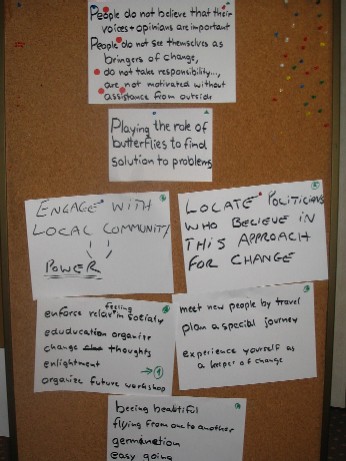 People do not believe that their
voices + opinions are important
People do not see themselves as
bringers of change,
do not take responsibility...,
are not motivated without
assistance from outside
Playing the role of
butterflies to find
solution to problems
ENGAGE WITH
LOCAL COMMUNITY
POWER
LOCATE POLITICIANS
WHO BELIEVE IN
THIS APPROACH
FOR CHANGE
feeling
enforce relax in socialy
eduducation organise
change thoughts
enlightment
→ 1
organize future workshop
meet new people by travel
plan a special journey
experience yourself as
a keeper of change
beeing beautiful
flying from one to another
germination
easy going